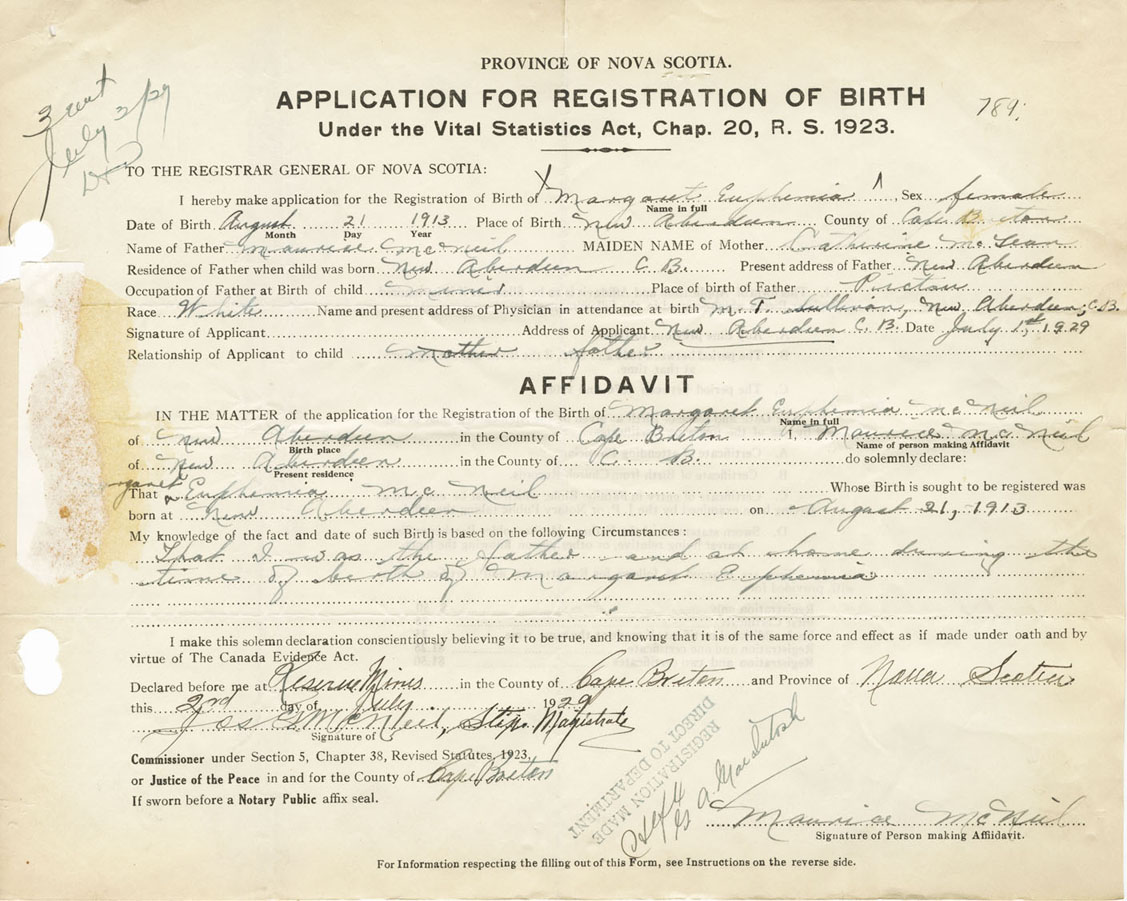 PROVINCE OF NOVA SCOTIA.
APPLICATION FOR REGISTRATION OF BIRTH
Under the Vital Statistics Act, Chap. 20, R. S. 1923.
784.
July 2/29
TO THE REGISTRAR GENERAL OF NOVA SCOTIA:
I hereby make application for the Registration of Birth of Margaret Euphemia, Sex female
Name in full
Date of Birth August 21 1913 Place of Birth New Aberdeen County of Cape Breton
Month Day Year
Name of Father Maurice McNeil MAIDEN NAME of Mother Catherine McLean
Residence of Father when child was born New Aberdeen C. B. Present address of Father New Aberdeen
Occupation of Father at Birth of child Miner Place of birth of Father Pictou
Race White Name and present address of Physician in attendance at birth M. T. Sullivan, New Aberdeen, C. B.
Signature of Applicant Address of Applicant New Aberdeen C. B. Date July 1st, 1929
Relationship of Applicant to child Mother father
AFFIDAVIT
IN THE MATTER of the application for the Registration of the Birth of Margaret Euphemia McNeil
Name in full
of New Aberdeen in the County of Cape Breton I, Maurice McNeil
Birth place Name of person making Affidavit
of New Aberdeen in the County of C. B. do solemnly declare:
Present residence
That Margaret Euphemia McNeil Whose Birth is sought to be registered was
born at New Aberdeen on August 21, 1913
My knowledge of the fact and date of such Birth is based on the following Circumstances:
That I was the father and at home during the
time of birth of Margaret Euphemia
I make this solemn declaration conscientiously believing it to be true, and knowing that it is of the same force and effect as if made under oath and by
virtue of The Canada Evidence Act.
Declared before me at Reserve Mines in the County of Cape Breton and Province of Nova Scotia
this 2nd day of July 1929
Jos McNeil, Stip. Magistrate
Signature of
Commissioner under Section 5, Chapter 38, Revised Statutes, 1923,
or Justice of the Peace in and for the County of Cape Breton
If sworn before a Notary Public affix seal.
REGISTRATION MADE
DIRECT TO DEPARTMENT
A. MacIntosh
Maurice McNeil
Signature of Person making Affidavit.
For Information respecting the filling out of this Form, see Instructions on the reverse side.